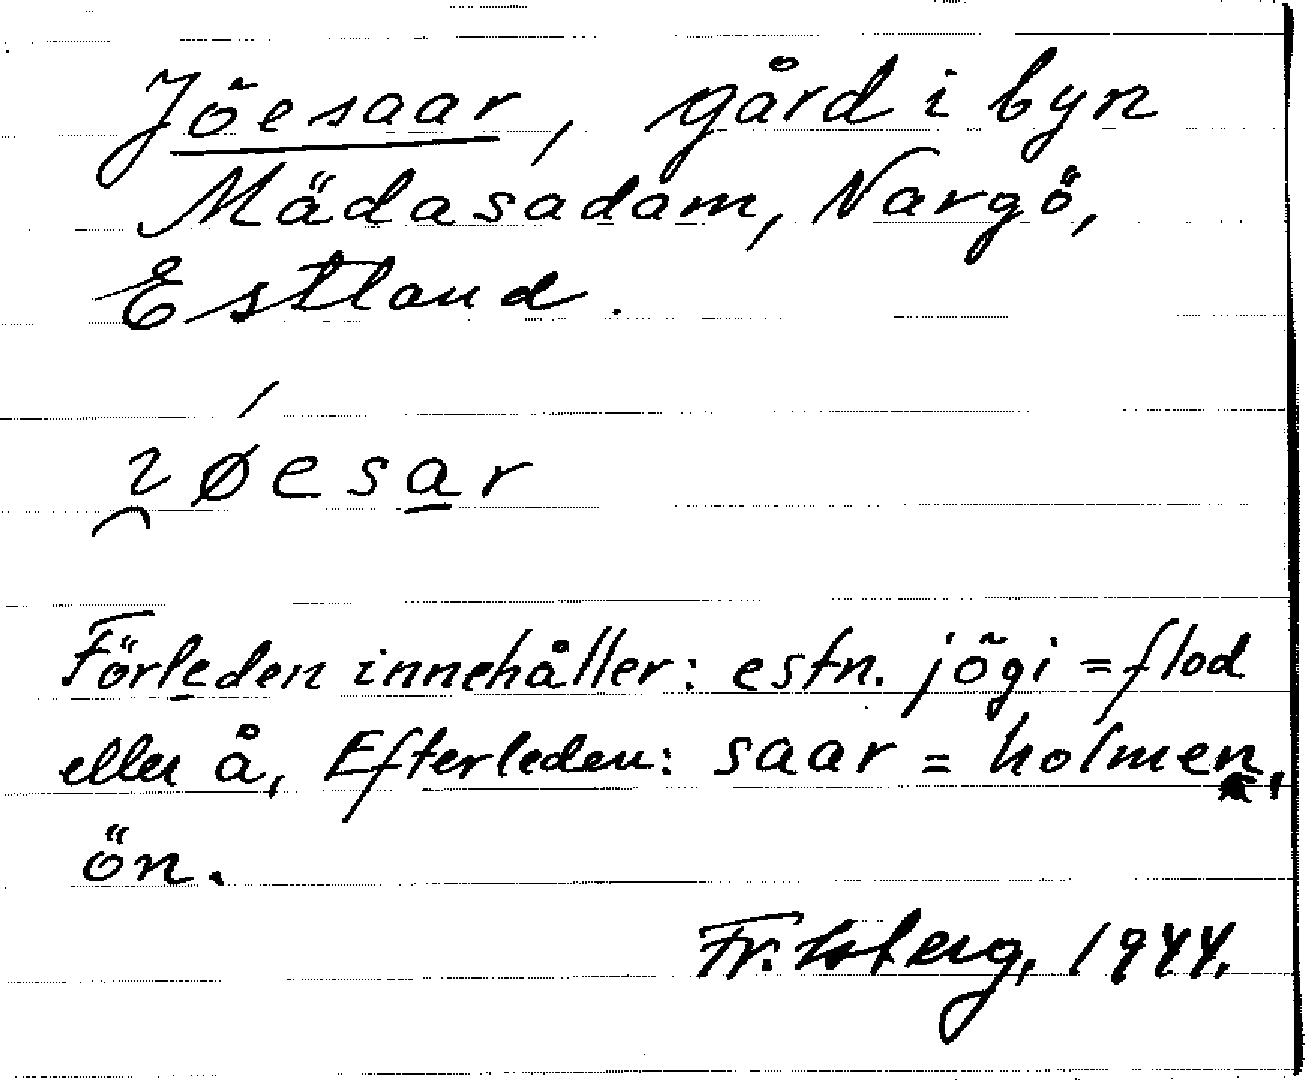 Jõesaar, gård i byn
Mädasadam, Nargö,
Estland.
ı̯øesa̱r
Förleden innehåller: estn. jõgi = flod
eller å, Efterleden: saar = holmen,
ön.
Fr. Isberg, 1944.